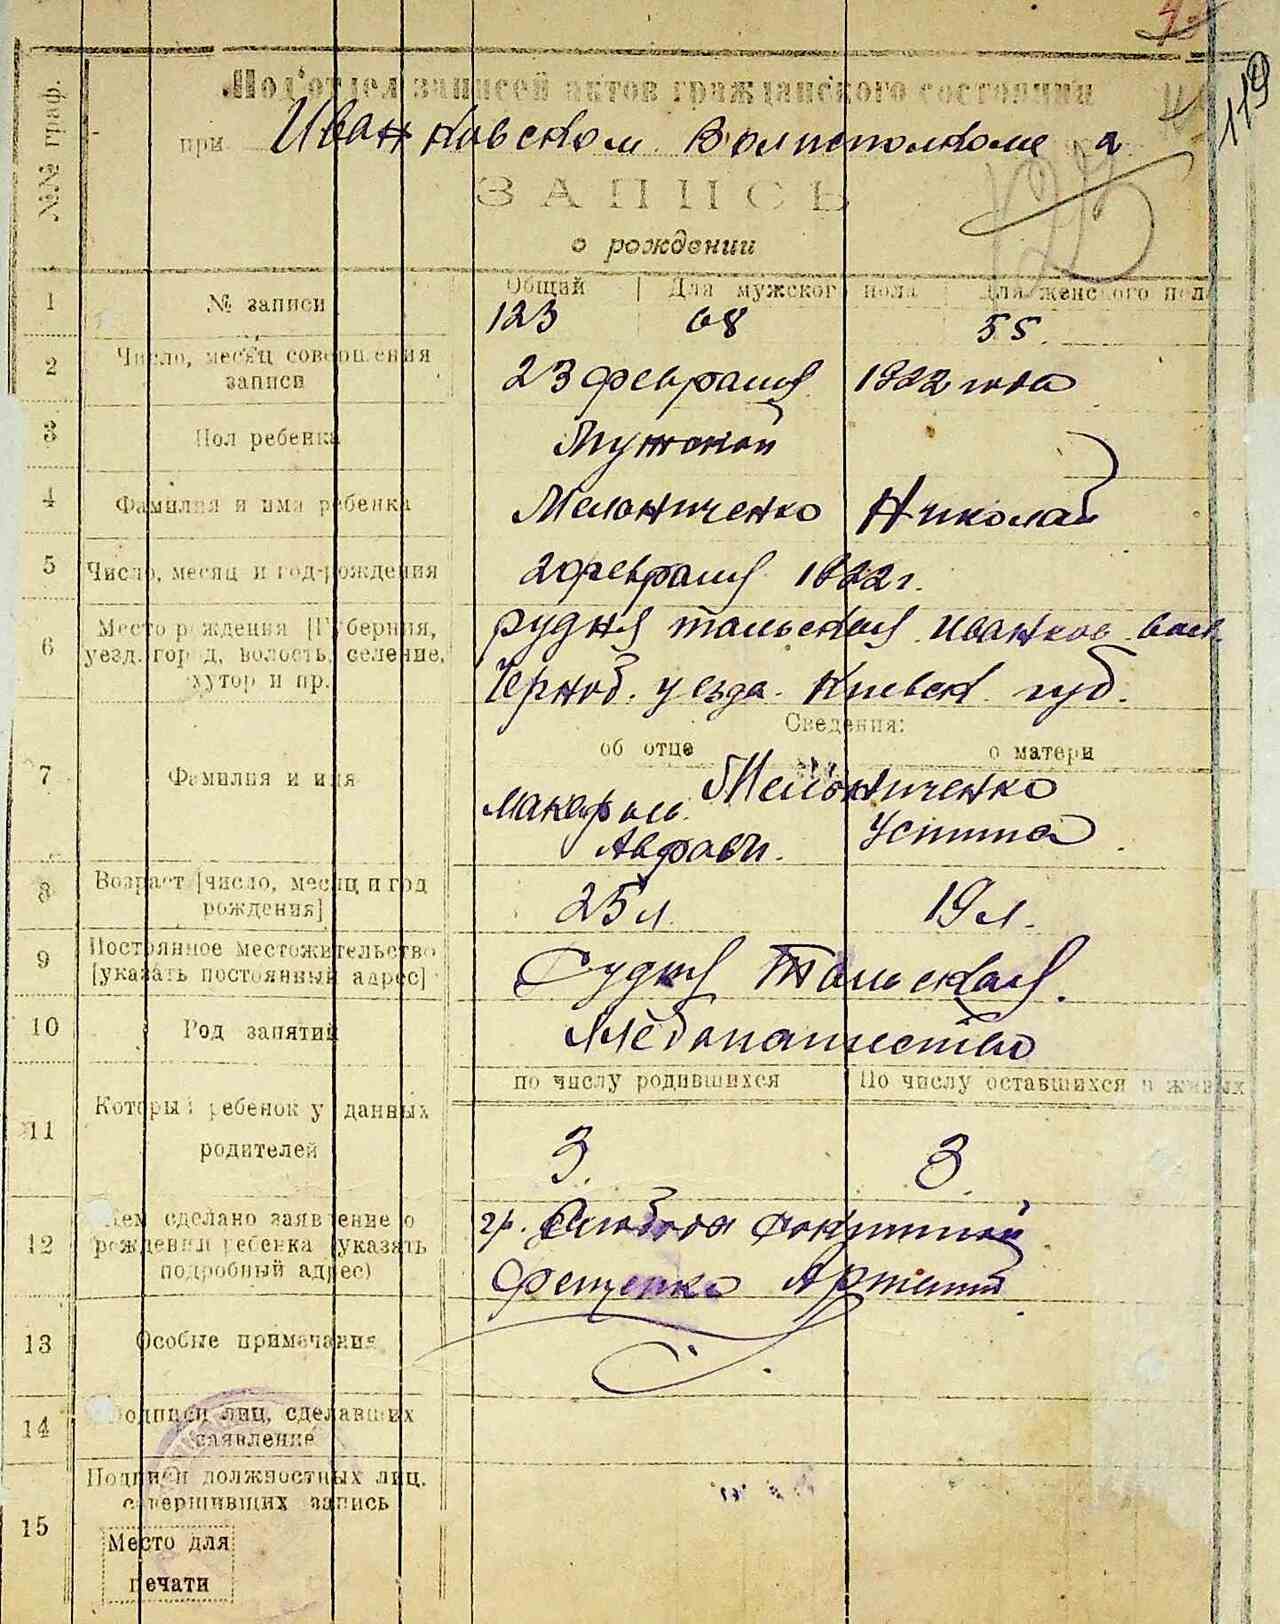 119
№№ граф.
Под'отдел записей актов гражданского состояния
при Иванковском Волисполкоме
ЗАПИСЬ
о рождении
1 № записи
Общий | Для мужского пола | Для женского пола
123 68 55.
2 Число, месяц совершения записи
23 февраля 1922 года
3 Пол ребенка
Мужской
4 Фамилия и имя ребенка
Мельниченко Николай
5 Число, месяц и год рождения
2 февраля 1922 г.
6 Место рождения [Губерния,
уезд, город, волость, селение,
хутор и пр.
Рудня Тальская Иванков. вол.
Черноб. уезда. Киевск губ.
Сведения:
об отце о матери
7 Фамилия и имя
Мельниченко
Макар
Устина
8 Возраст [число, месяц и год
рождения]
25 л. 19 л.
9 Постоянное местожительство
[указать постоянный адрес]
Рудня Тальская.
10 Род занятий
Хлебопашество
по числу родившихся По числу оставшихся в живых
11 Который ребенок у данных
родителей
3. 3.
12 Кем сделано заявление о
рождении ребенка (указать
подробный адрес)
гр.
Фещенко Артем
13 Особые примечания
14 Подписи лиц, сделавших
заявление
15 Подписи должностных лиц,
совершивших запись
Место для
печати